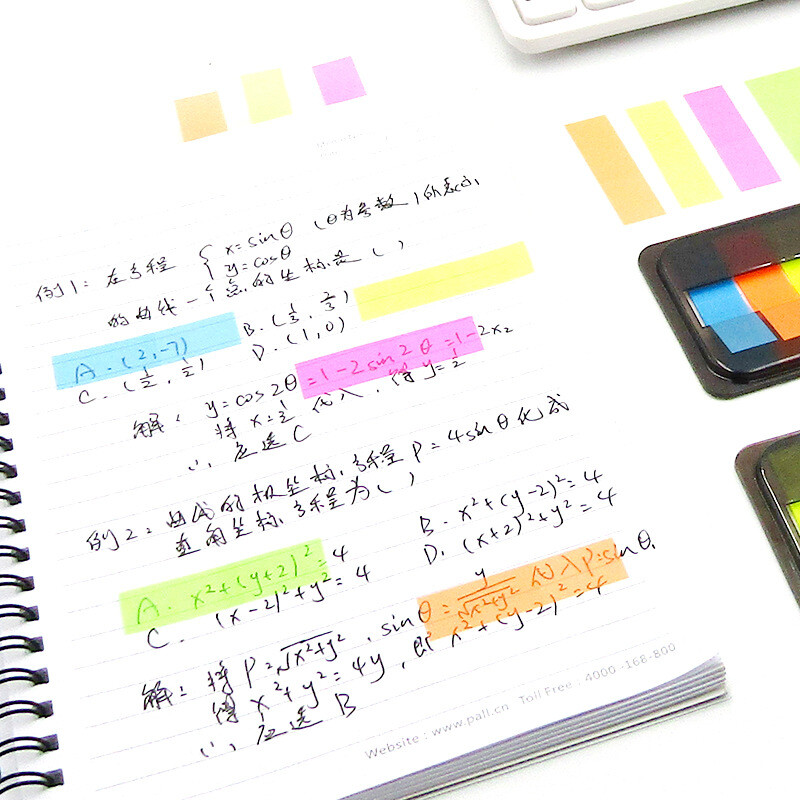 例1：在方程 { x=sinθ (θ为参数)所表示
y=cosθ
的曲线一个点的坐标是( )
A. (2,-7) B. (1/3, 2/3)
C. (1/2, 1/2) D. (1,0)
解： y=cos2θ=1-2sin2θ=1-2x2
将 x=1/2 代入，得 y=1/2
∴ 应选C
例2：曲线的极坐标方程 P=4sinθ化成
直角坐标方程为( )
A. x²+(y+2)²=4 B. x²+(y-2)²=4
C. (x-2)²+y²=4 D. (x+2)²+y²=4
解：将 P=√x²+y², sinθ= y/√x²+y² 代入P=sinθ,
得 x²+y²=4y, 即 x²+(y-2)²=4
∴ 应选B
Website : www.pall.cn Toll Free : 4000-168-800